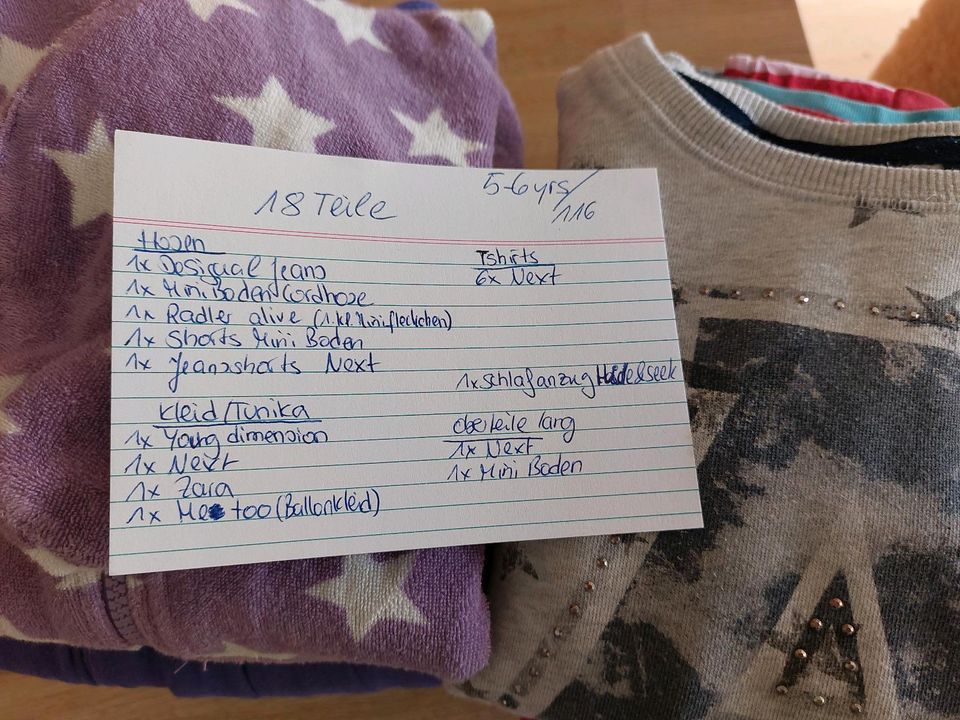 18 Teile
5-6yrs/
116
Hosen
1x Desigual Jeans
1x Mini Boden Cordhose
1x Radler alive (1.kl. Minifleckchen)
1x Shorts Mini Boden
1x Jeansshorts Next
Kleid/Tunika
1x Young dimension
1x Next
1x Zara
1x Me too (Ballonkleid)
Tshirts
6x Next
1x Schlafanzug Hide&seek
Oberteile lang
1x Next
1x Mini Boden
A